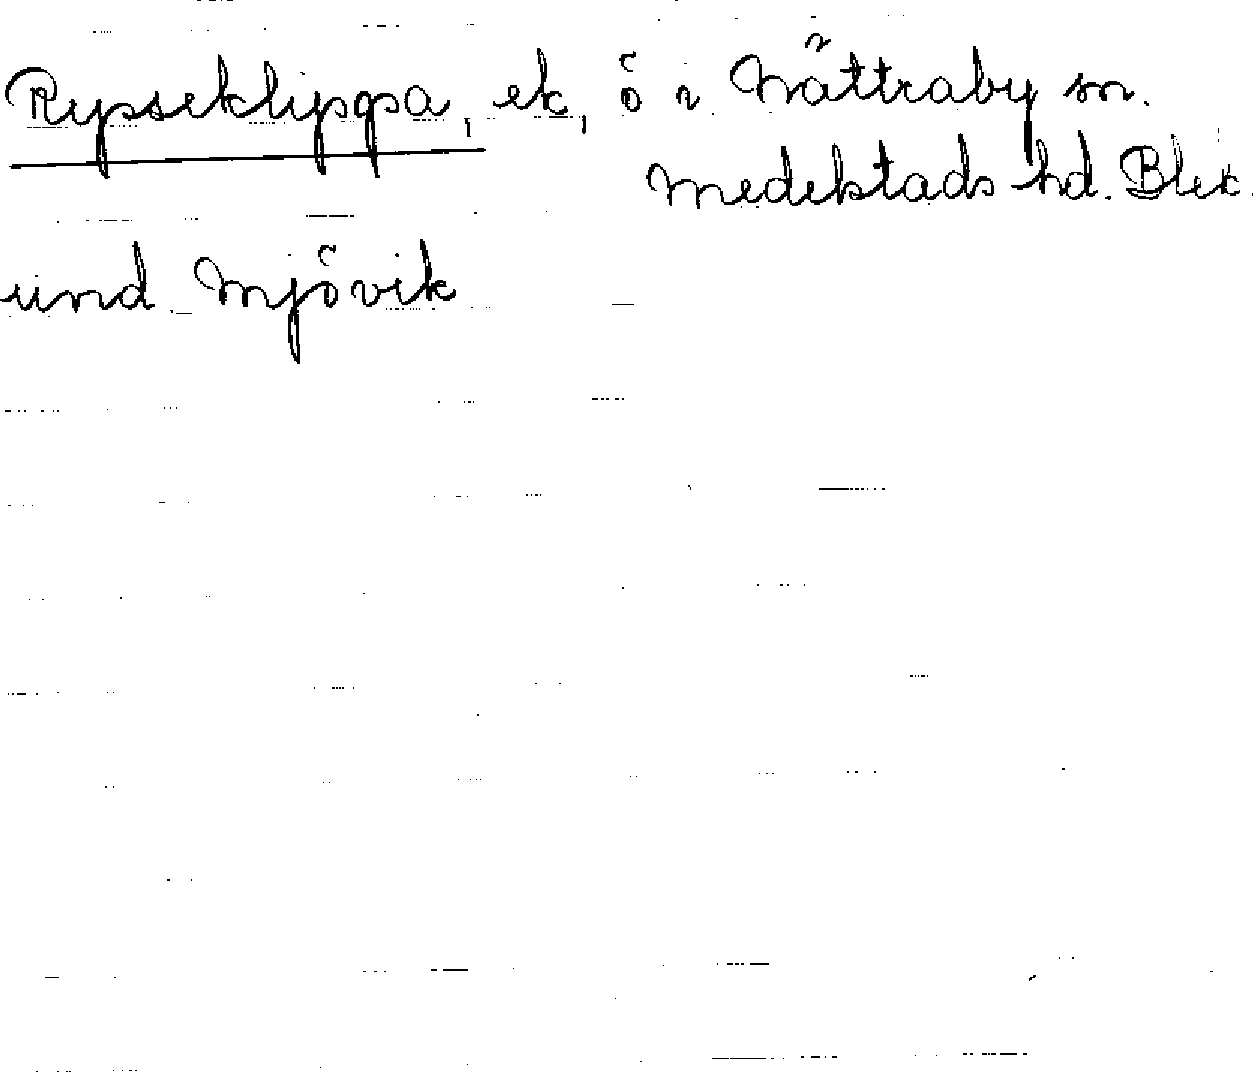 Rysseklippa, ek, ö i Nättraby sn.
Medelstads hd. Blek.
und. Mjövik